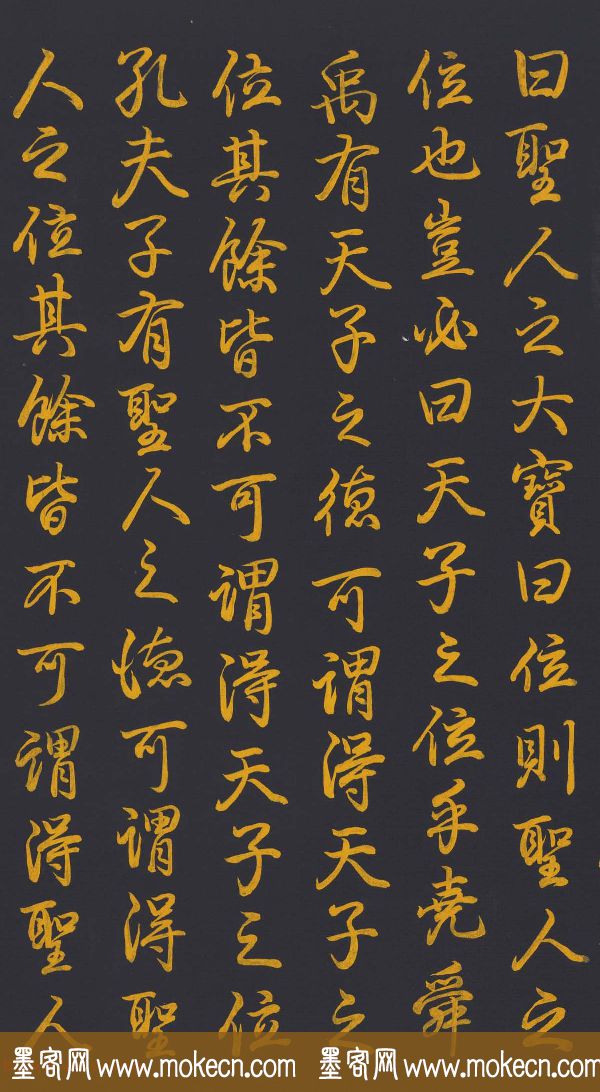 曰聖人之大寶曰位則聖人之
位也豈必曰天子之位乎堯舜
禹有天子之德可謂得天子之
位其餘皆不可謂得天子之位
孔夫子有聖人之德可謂得聖
人之位其餘皆不可謂得聖人
墨客网 www.mokecn.com 墨客网 www.mokecn.com